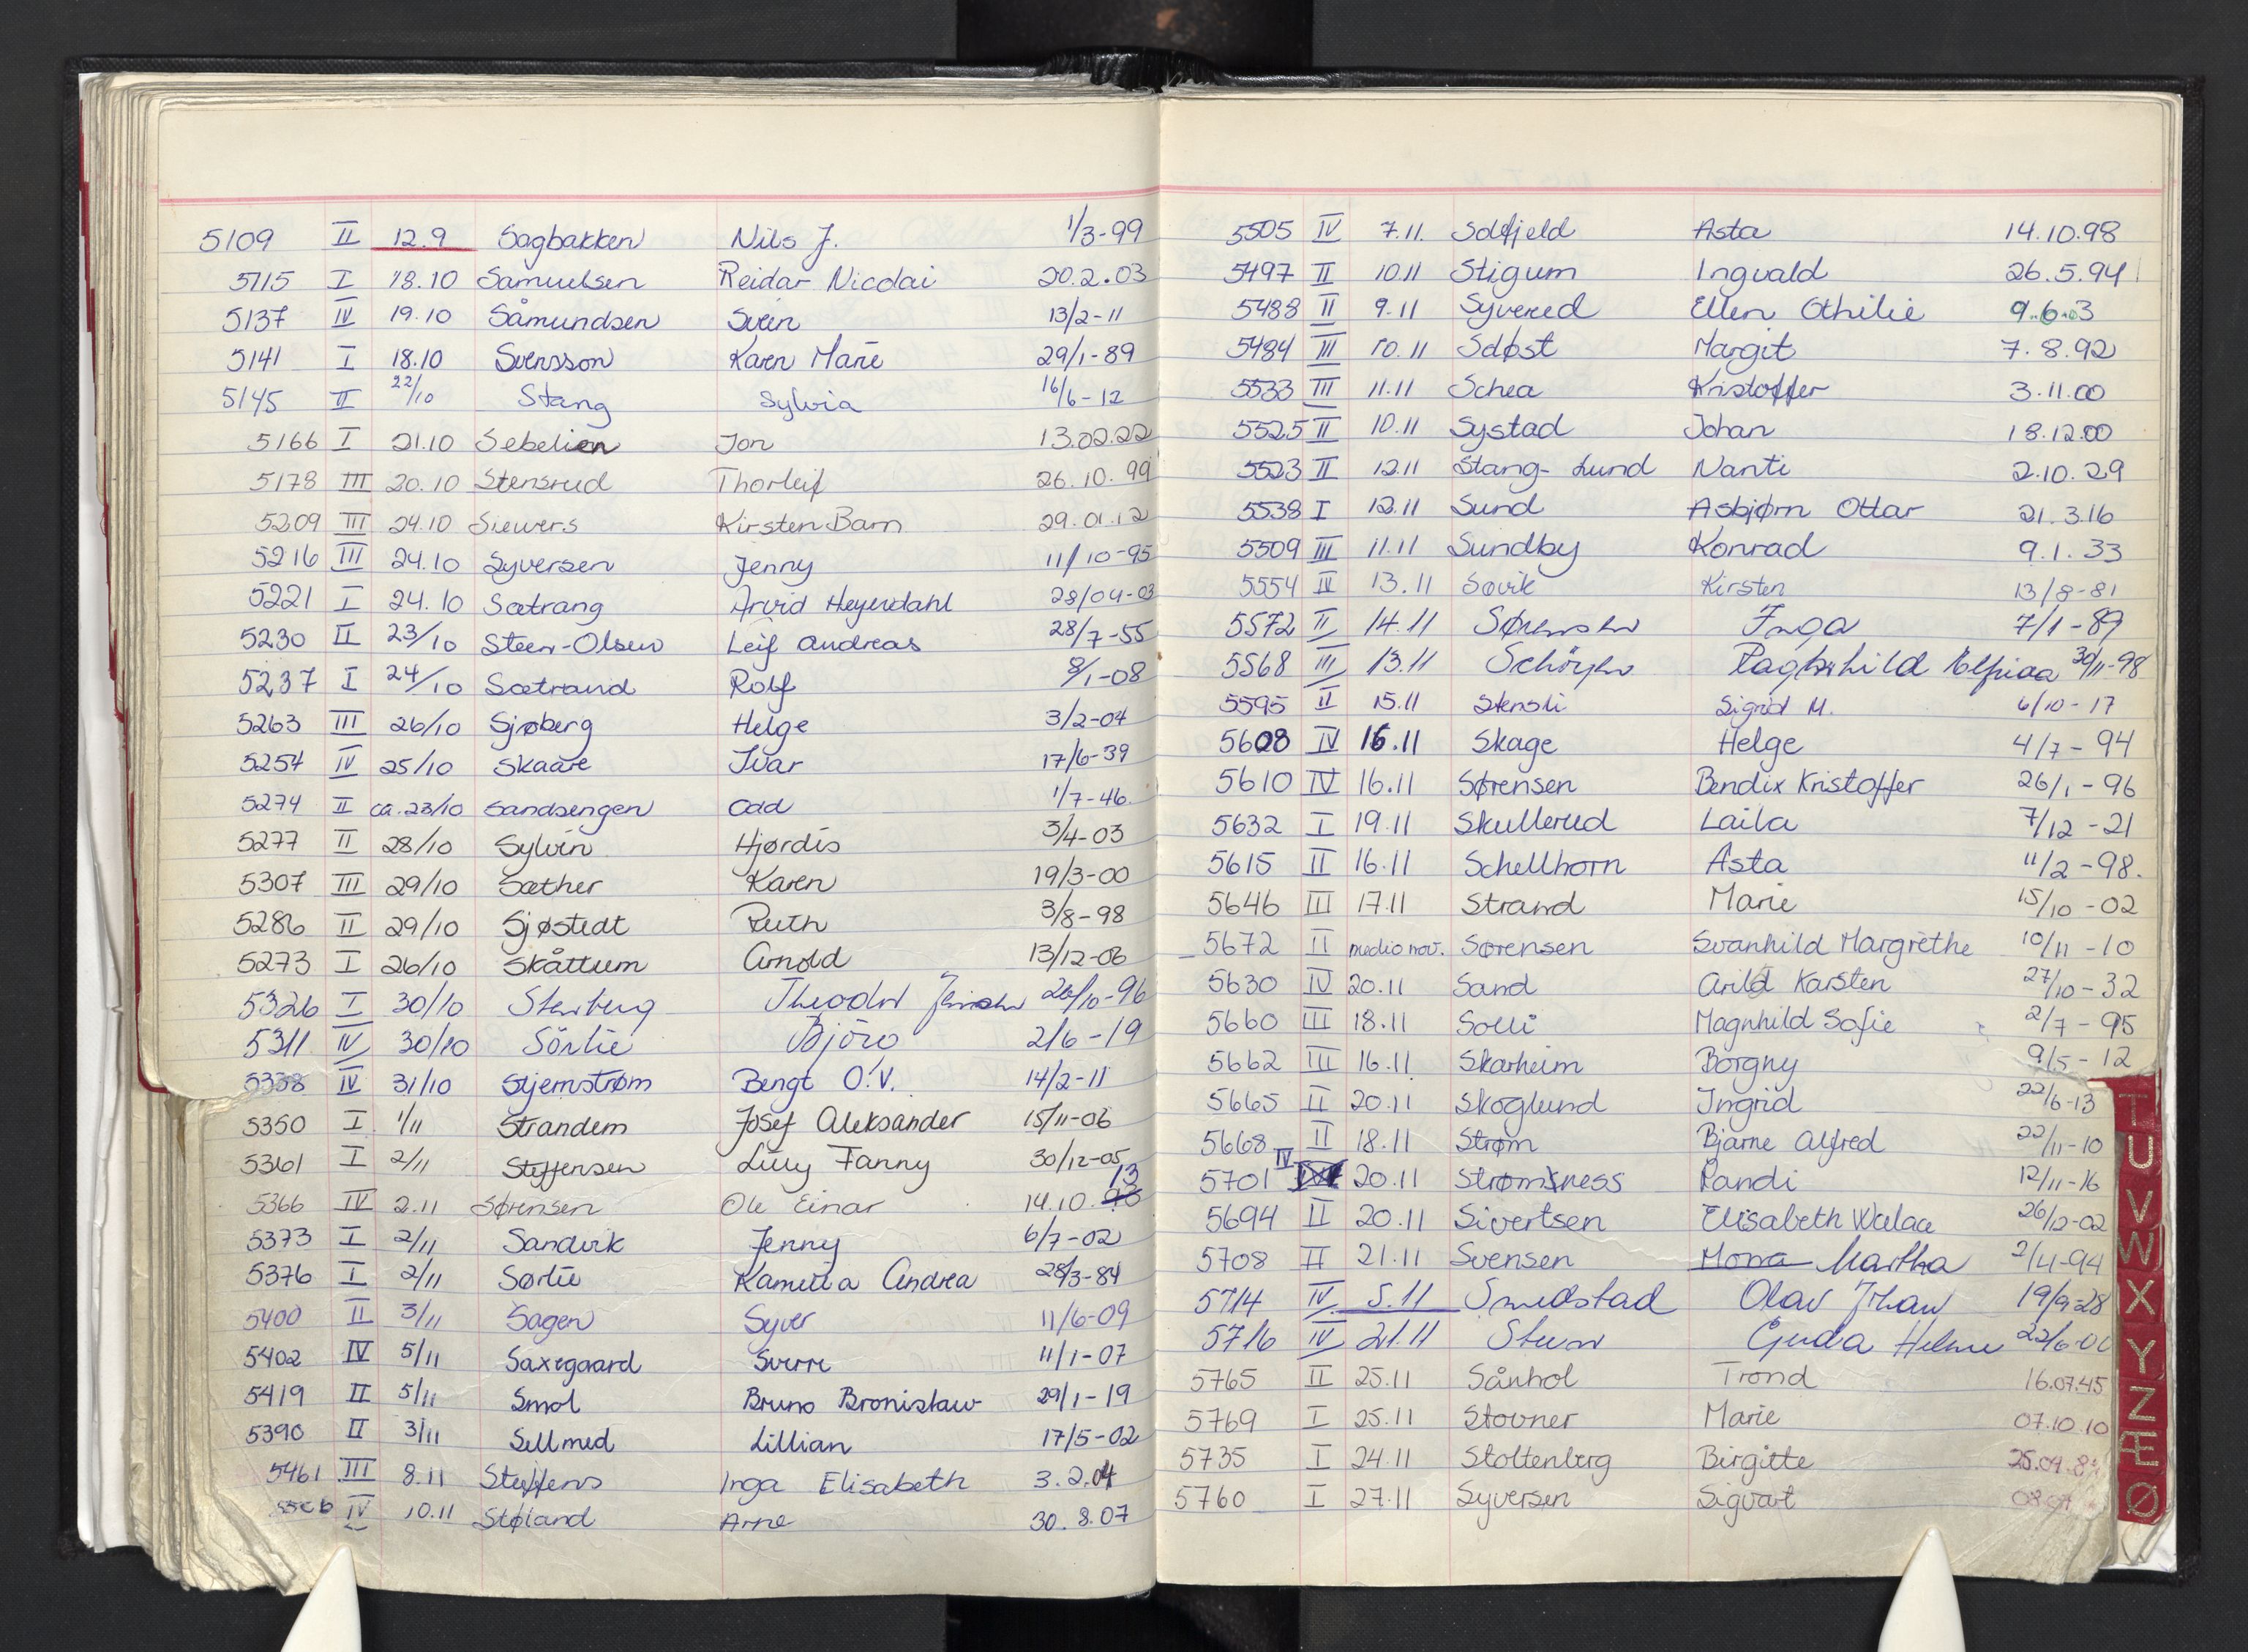 5109 II 12.9 Sagbakken Nils J. 1/3-99
5115 I 18.10 Samuelsen Reidar Nicolai 20.2.03
5137 IV 19.10 Såmundsen Svein 13/2-11
5141 I 18.10 Svensson Karen Marie 29/1-89
5145 II 22/10 Stang Sylvia 16/6-12
5166 I 21.10 Sebelien Jon 13.02.22
5178 III 20.10 Stensrud Thorleif 26.10.99
5209 III 24.10 Siewers Kirsten Barn 29.01.12
5216 III 24.10 Syversen Jenny 11/10-95
5221 I 24.10 Sætrang Arvid Heyerdahl 28/04-03
5230 II 23/10 Steen-Olsen Leif Andreas 28/7-55
5237 I 24/10 Sætrand Rolf 8/1-08
5263 III 26/10 Sjøberg Helge 3/2-04
5254 IV 25/10 Skaare Ivar 17/6-39
5274 II ca.23/10 Sandsengen Odd 1/7-46
5277 II 28/10 Sylvin Hjørdis 3/4-03
5307 III 29/10 Sæther Karen 19/3-00
5286 II 29/10 Sjøstedt Ruth 3/8-98
5273 I 26/10 Skåttum Arnold 13/12-06
5326 I 30/10 Stenberg Theodor 26/10-96
5311 IV 30/10 Sörlie Björn 2/6-19
5338 IV 31/10 Stjernstrøm Bengt O.V. 14/2-11
5350 I 1/11 Strandem Josef Aleksander 15/11-06
5361 I 2/11 Steffensen Lilly Fanny 30/12-05
5366 IV 2.11 Sørensen Ole Einar 14.10.13
5373 I 2/11 Sandvik Jenny 6/7-02
5376 I 2/11 Sørlie Kamilla Andrea 28/3-84
5400 II 3/11 Sagen Syver 11/6-09
5402 IV 5/11 Saxegaard Sverre 11/1-07
5419 II 5/11 Smol Bruno Bronislaw 29/1-19
5390 II 3/11 Sellmed Lillian 17/5-02
5461 III 8.11 Steffens Inga Elisabeth 3.2.04
IV 10.11 Støland Arne 30.8.07
5505 IV 7.11. Solfjeld Asta 14.10.98
5497 II 10.11 Stigum Ingvald 26.5.94
5488 II 9.11 Syvered Ellen Othilie 9.6.03
5484 III 10.11 Sdøst Margit 7.8.92
5533 III 11.11 Schea Kristoffer 3.11.00
5525 II 10.11 Systad Johan 18.12.00
5523 II 12.11 Stang-Lund Nanti 2.10.29
5538 I 12.11 Sund Asbjørn Ottar 21.3.16
5509 III 11.11 Sundby Konrad 9.1.33
5554 IV 13.11 Søvik Kirsten 13/8-81
5572 II 14.11 Sørensen Inga 7/1-89
5568 III 13.11 Schöyen 30/11-98
5595 II 15.11 Stensli Sigrid M. 6/10-17
5608 IV 16.11 Skage Helge 4/7-94
5610 IV 16.11 Sørensen Bendix Kristoffer 26/1-96
5632 I 19.11 Skullerud Laila 7/12-21
5615 II 16.11 Schellhorn Asta 11/2-98.
5646 III 17.11 Strand Marie 15/10-02
5672 II medio nov. Sørensen Svanhild Margrethe 10/11-10
5630 IV 20.11 Sand Arild Karsten 27/10-32
5660 III 18.11 Solli Magnhild Sofie 2/7-95
5662 III 16.11 Skarheim Borgny 9/5-12
5665 II 20.11 Skoglund Ingrid 22/6-13
5668 II 18.11 Strøm Bjarne Alfred 22/11-10
5701 IV 20.11 Strømsness Randi 12/11-16
5694 II 20.11 Sivertsen Elisabeth 26/12-02
5708 II 21.11 Svensen Mona Martha 2/4-94
5714 IV 5.11 Smedstad Olav Johan 19/9-28
5716 IV 21.11 Steen Guda Helene
5765 II 25.11 Sånhol Trond 16.07.45
5769 I 25.11 Stovner Marie 07.10.10
5735 I 24.11 Stoltenberg Birgitte
5760 I 27.11 Syversen Sigvart
T
U
V
W
X
Y
Z
Æ
Ø